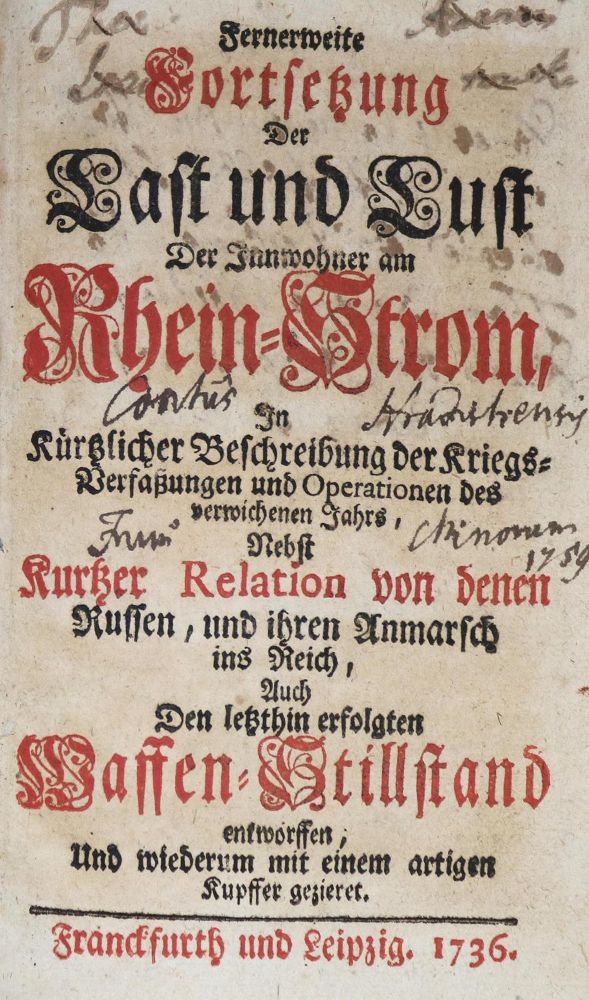 Fernerweite
Fortsetzung
Der
Last und Lust
Der Innwohner am
Rhein-Strom,
In
Kürtzlicher Beschreibung der Kriegs-
Verfaßungen und Operationen des
verwichenen Jahrs,
Nebst
Minorum
1759
Kurtzer Relation von denen
Russen, und ihren Anmarsch
ins Reich,
Auch
Den letzthin erfolgten
Waffen-Stillstand
entworffen,
Und wiederum mit einem artigen
Kupffer gezieret.
Franckfurth und Leipzig. 1736.